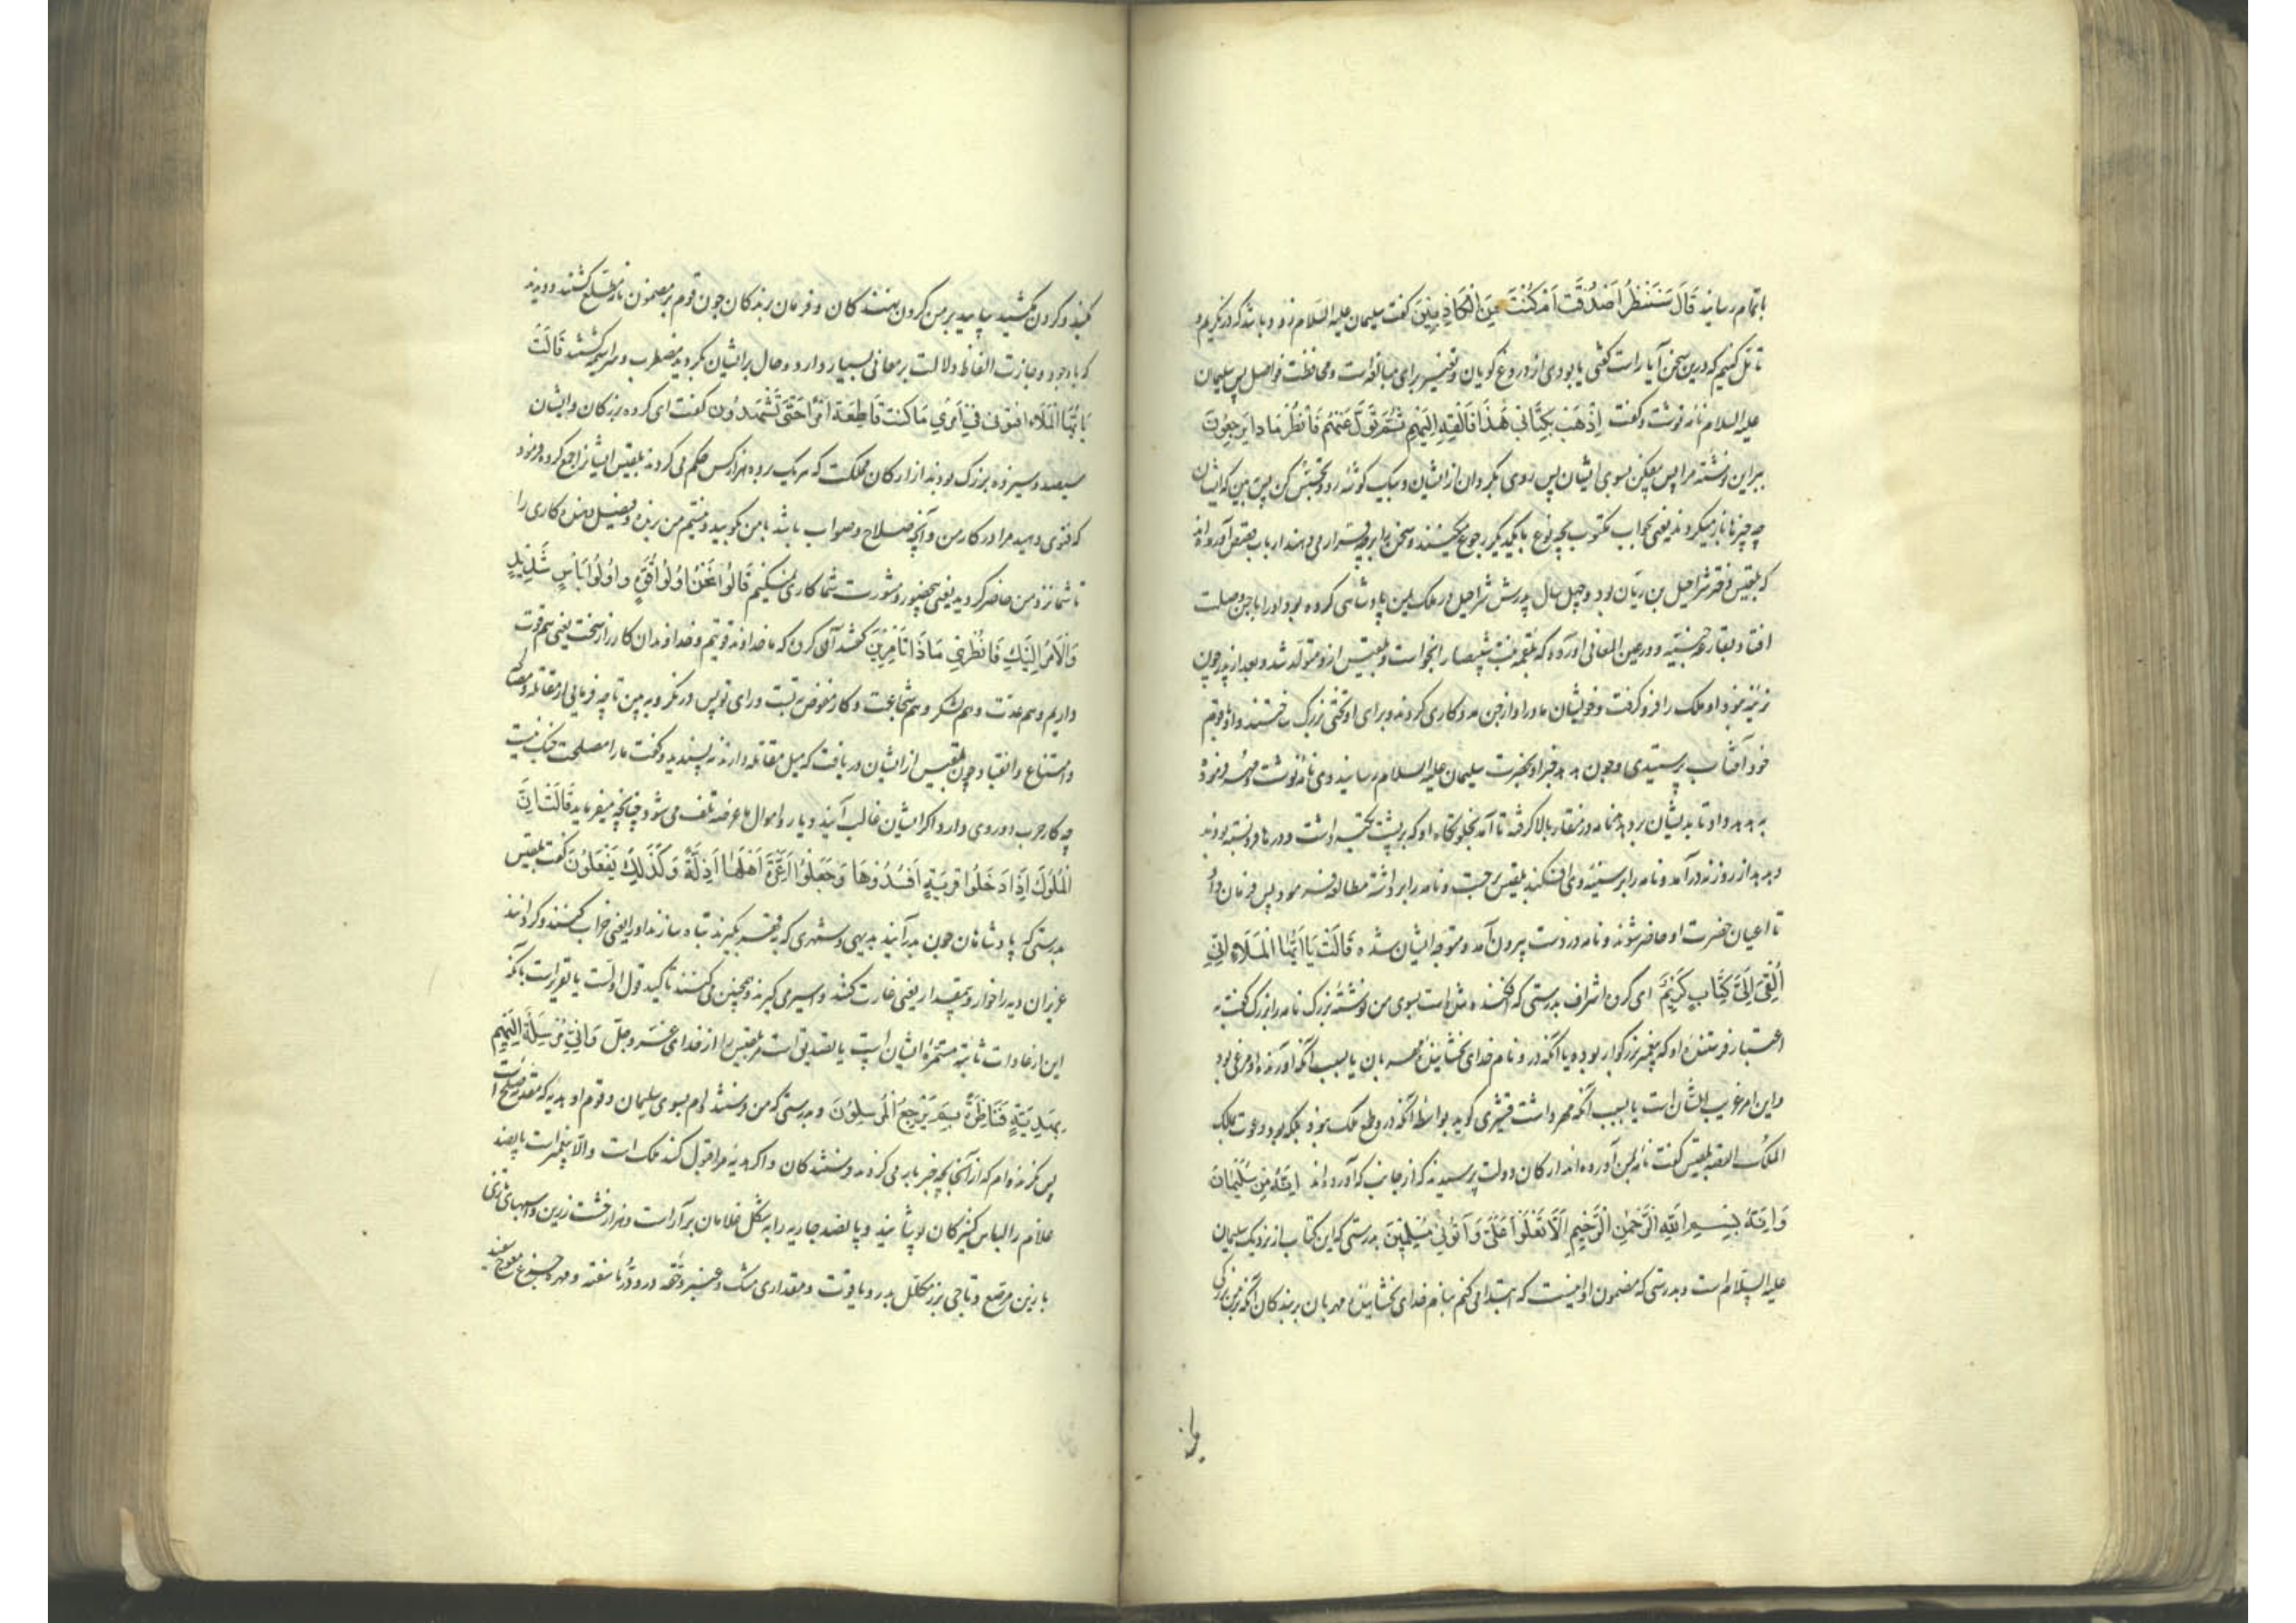 باتمام رسانید قَالَ سَنَنْظُرُ اَصَدَقْتَ اَمْ كُنْتَ مِنَ الْكَاذِبِينَ گفت سلیمان علیه السلام زود باشد که در نگریم و
تامل کنیم که درین سخن آیا راست گفتی یا بودی از دروغ گویان و تغییر برای مبالغه است و محافظت فواصل پس سلیمان
علیه السلام نامه نوشت و گفت اِذْهَبْ بِكِتَابِی هَذَا فَاَلْقِهِ اِلَيْهِمْ ثُمَّ تَوَلَّ عَنْهُمْ فَانْظُرْ مَا ذَا يَرْجِعُونَ
ببر این نوشته مرا پس بیفکن بسوی ایشان پس روی بگردان از ایشان و بیک گوشه رو و تجسس کن پس ببین که ایشان
چه چیز باز میگردند یعنی جواب مکتوب بچه نوع با یکدیگر رجوع میکنند و سخن را بر چه قرار می دهند ارباب قصص آورده اند
که بلقیس دختر شراحیل بن ریان بود و چهل سال پدرش شراحیل در ملک یمن پادشاهی کرده بود او را با جن وصلت
افتاد و در عین المعانی آورده که بلقمه بنت شیصا را بخواست و بلقیس ازو متولد شد و بعد از پدر چون
نرینه نبود او ملک را فرو گرفت و خویشان مادر او از جن مددکاری کردند و برای او تختی بزرگ ساختند و او و قوم
خود آفتاب پرستیدی و چون هدهد خبر او بحضرت سلیمان علیه السلام رسانید وی نامه نوشت و مهر فرموده
به هدهد داد تا بدیشان برد هدهد نامه در منقار بالا گرفته تا آمد بخلوتگاه او که بر پشت تکیه داشت و درها فرو بسته بودند
هدهد از روزنه درآمد و نامه را بر سینه وی افکند بلقیس برجست و نامه را برداشته مطالعه فرمود پس فرمان داد
تا اعیان حضرت او حاضر شوند و نامه در دست بیرون آمد و متوجه ایشان شده قَالَتْ يَا اَيُّهَا الْمَلَاءُ اِنِّی
اُلْقِیَ اِلَیَّ كِتَابٌ كَرِيمٌ ای گروه اشراف بدرستی که افکنده شده است بسوی من نوشته بزرگ نامه را بزرگ گفت به
اعتبار فرستنده او که پیغمبر بزرگوار بوده یا آنکه درو نام خدای بخشاینده مهربان یا بسبب آنکه آورنده او مرغی بود
و این امر غریب الشان است یا بسبب آنکه مهر داشت قشیری گوید بواسطه آنکه درو طمع ملک نبود بلکه بود دعوت بملک
الملک القصه بلقیس گفت نامه بمن آورده اند ارکان دولت پرسیدند که از جانب که آورده اند اِنَّهُ مِنْ سُلَيْمَانَ
وَاِنَّهُ بِسْمِ اللَّهِ الرَّحْمَنِ الرَّحِيمِ اَلَّا تَعْلُوا عَلَیَّ وَاْتُونِی مُسْلِمِينَ بدرستی که این کتاب از نزدیک سلیمان
علیه السلام است و بدرستی که مضمون او اینست که ابتدا می کنم بنام خدای بخشاینده مهربان بر بندگان آنکه بر من بزرگی
کنید و گردن مکشید بیایید بر من گردن نهندگان و فرمان برندگان چون قوم بر مضمون نامه مطلع گشتند و دیدند
که با وجود وجازت الفاظ دلالت بر معانی بسیار دارد و حال بر ایشان بگردید مضطرب و سراسیمه گشتند قَالَتْ
يَا اَيُّهَا الْمَلَاءُ اَفْتُونِی فِی اَمْرِی مَا كُنْتُ قَاطِعَةً اَمْرًا حَتَّى تَشْهَدُونِ گفت ای گروه بزرگان و ایشان
سیصد و سیزده بزرگ بودند از ارکان مملکت که هر یک بر ده هزار کس حکم می کردند بلقیس ایشان را جمع کرده فرمود
که فتوی دهید مرا در کار من و آنچه صلاح و صواب باشد با من بگویید و نیستم من برنده و فیصل دهنده کاری را
تا شما نزد من حاضر گردید یعنی بی حضور و مشورت شما کاری نمیکنیم قَالُوا نَحْنُ اُولُوا قُوَّةٍ وَاُولُوا بَاْسٍ شَدِيدٍ
وَالْاَمْرُ اِلَيْكِ فَانْظُرِی مَا ذَا تَاْمُرِينَ گفتند آن گروه که ما خداوند قوتیم و خداوندان کارزار سخت یعنی هم قوت
داریم و هم عدت و هم لشکر و هم شجاعت و کار مفوض به تست و رای تو پس در نگر و به بین تا چه فرمایی از مقاتله و مصالحه
و امتناع و انقیاد چون بلقیس از ایشان دریافت که میل مقاتله دارند نه پسندید و گفت ما را مصلحت جنگ نیست
چه کار حرب دو روی دارد اگر ایشان غالب آیند دیار و اموال ما عرضه تلف می شود چنانچه میفرماید قَالَتْ اِنَّ
الْمُلُوكَ اِذَا دَخَلُوا قَرْيَةً اَفْسَدُوهَا وَجَعَلُوا اَعِزَّةَ اَهْلِهَا اَذِلَّةً وَكَذَلِكَ يَفْعَلُونَ گفت بلقیس
بدرستی که پادشاهان چون بدر آیند بدیهی و شهری که بقهر بگیرند تباه سازند او را یعنی خراب کنند و گردانند
عزیزان دیه را خوار و بیمقدار یعنی غارت کنند و اسیر می گیرند و همچنین می کنند تاکید قول اولست یا تقریر است بآنکه
این از عادات ثابته مستمره ایشان است یا تصدیق است مر بلقیس را از خدای عز و جل وَاِنِّی مُرْسِلَةٌ اِلَيْهِمْ
بِهَدِيَّةٍ فَنَاظِرَةٌ بِمَ يَرْجِعُ الْمُرْسَلُونَ و بدرستی که من فرستنده ام بسوی سلیمان و قوم او هدیه که مقدمه صلح است
پس نگرنده ام که از آنجا بچه خبر باز می گردند فرستندگان و اگر هدیه مرا قبول کند ملک است والا پیغمبر است پانصد
غلام را لباس کنیزکان پوشانید و پانصد جاریه را به شکل غلامان بر آراست و هزار خشت زرین و اسبهای تازی
با زین مرصع و تاجی بزر مکلل بدر و یاقوت و مقداری مشک و عنبر و حقه درو در ناسفته و مهره جزع معوج سفته
یا از